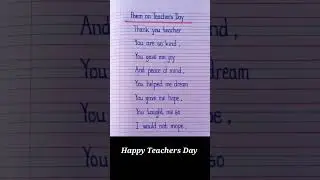 Poem on Teacher's Day
Thank you teacher
You are so kind,
You gave me joy
And peace of mind,
You helped me dream
You gave me hope,
You taught me so
I would not mope,
Happy Teachers Day
You
dream
You